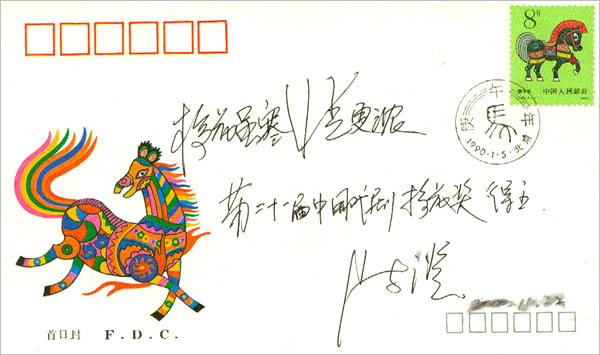 8分
庚午年
中国人民邮政
庚午年
馬
1990·1·5·北京
梅花 寒 更浓
第二十一届中国戏剧梅花奖得主
首日封 F. D. C.